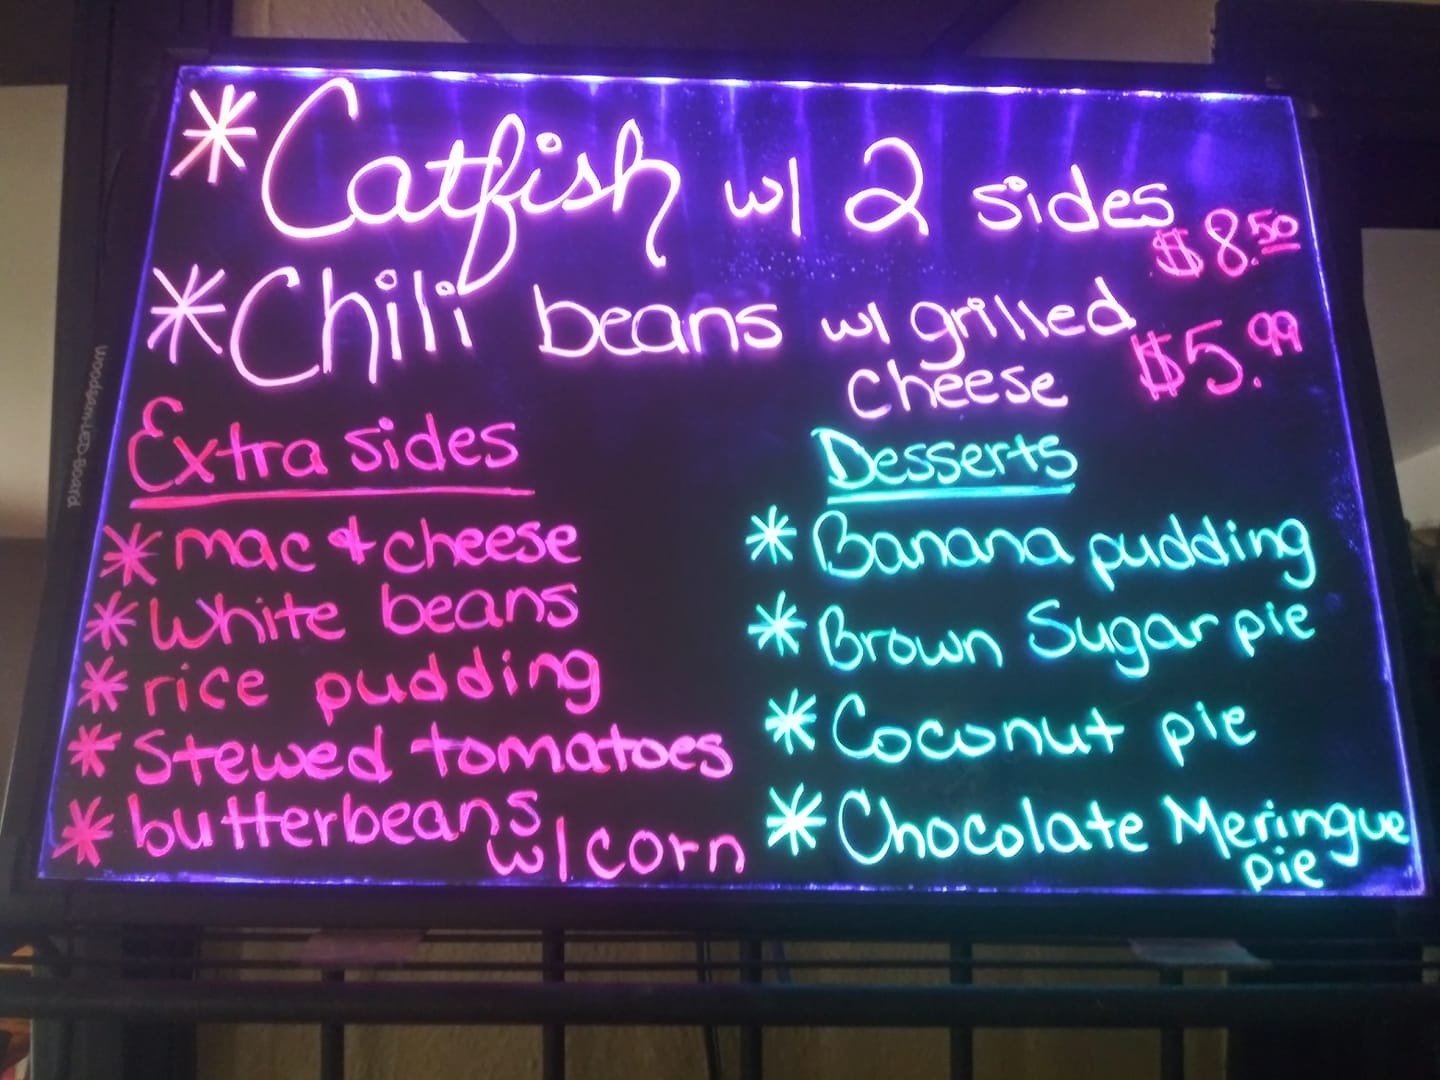 *Catfish w/ 2 sides $8.50
*Chili beans w/ grilled cheese $5.99
Extra sides
*mac & cheese
*White beans
*rice pudding
*Stewed tomatoes
*butterbeans w/ corn
Desserts
*Banana pudding
*Brown Sugar pie
*Coconut pie
*Chocolate Meringue pie
Woodsam LED Board